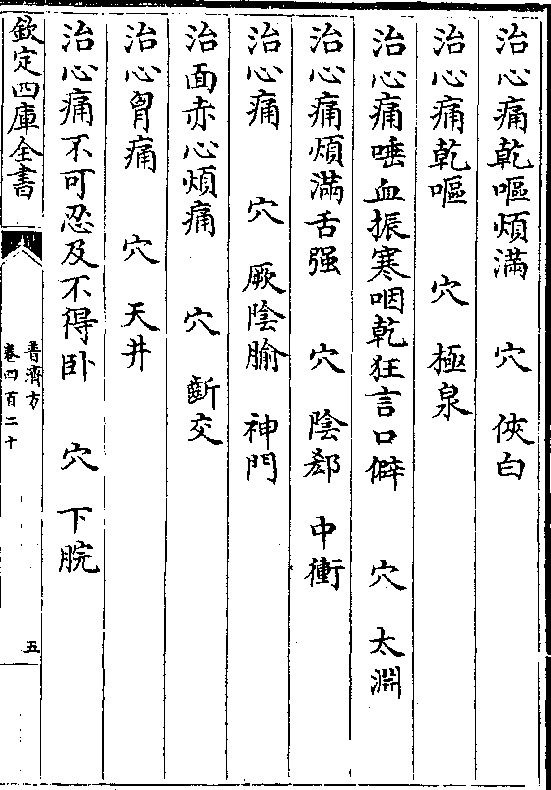 治心痛乾嘔煩滿　穴　俠白
治心痛乾嘔　穴　極泉
治心痛唾血振寒咽乾狂言口僻　穴　太淵
治心痛煩滿舌强　穴　陰郄　中衝
治心痛　穴　厥陰腧　神門
治面赤心煩痛　穴　齗交
治心胷痛　穴　天井
治心痛不可忍及不得卧　穴　下脘
欽定四庫全書
普濟方
卷四百二十
五